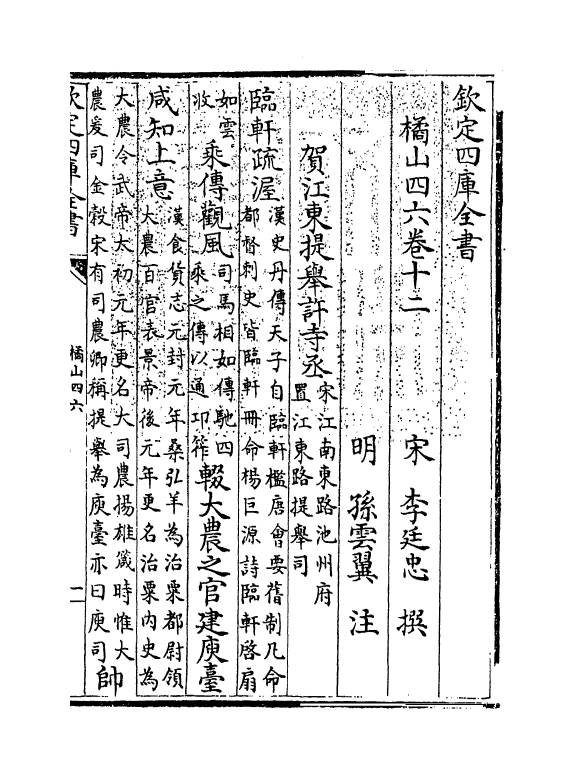 欽定四庫全書
橘山四六卷十二　宋　李廷忠　撰
明　孫雲翼　注
賀江東提舉許寺丞宋江南東路池州府
置江東路提舉司
臨軒疏渥漢史丹傳天子自臨軒檻唐會要舊制凡命
都督刺史皆臨軒冊命楊巨源詩臨軒啓扇
如雲
收
乘傳觀風司馬相如傳馳四
乘之傳以通卭筰
輟大農之官建庾臺
咸知上意漢食貨志元封元年桑弘羊為治粟都尉領
大農百官表景帝後元年更名治粟内史為
大農令武帝太初元年更名大司農揚雄箴時惟大
農爰司金穀宋有司農卿稱提舉為庾臺亦曰庾司
帥
欽定四庫全書
橘山四六
一